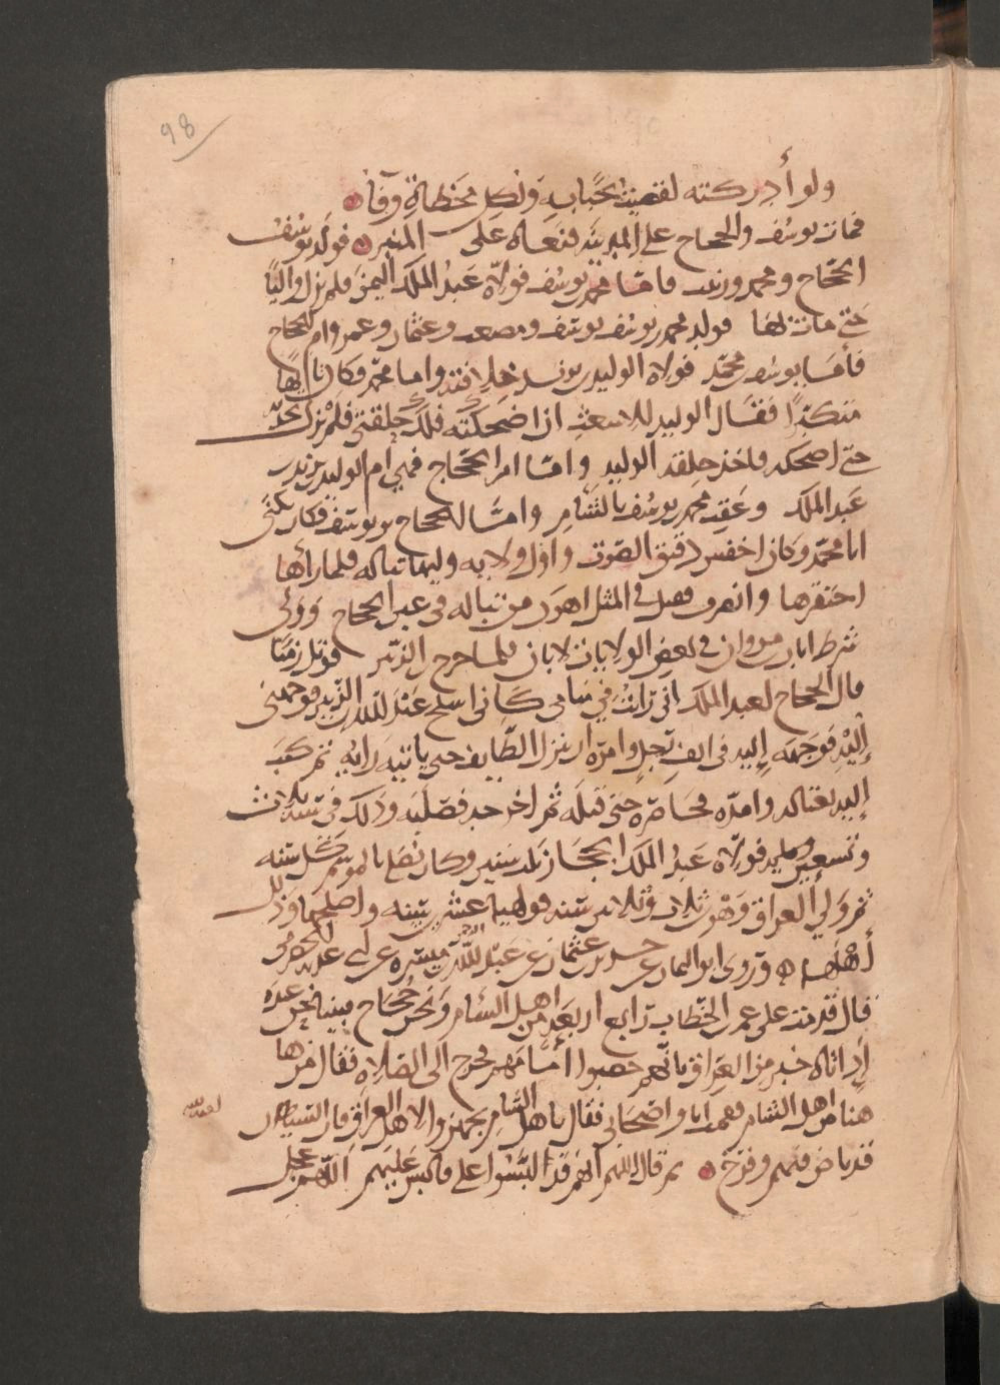 98
ولو أدركته لقضيت بحبابه ونكل مخطاة وقا
فمات يوسف والحجاج على المدينة فنعاه على المنبر فولد يوسف
الحجاج ومحمد وزينب فاما محمد بن يوسف فولاه عبد الملك اليمن فلم يزل واليا
حتى مات بها فولد محمد بن يوسف يوسف ومصعب وعثمان وعمر وام الحجاج
فأما يوسف بن محمد فولاه الوليد بن يزيد خلافته واما محمد فكان تايها
متكبرا فقال الوليد للاشعث ان اضحكته فلك حلقتي فلم يزل بحديثه
حتى اضحكه فاخذ حلقة الوليد واما ام الحجاج فهي ام الوليد بن يزيد بن
عبد الملك وعقب محمد بن يوسف بالشام واما الحجاج بن يوسف فكان يكنى
ابا محمد وكان اخفش دقيق الصوت واول ولاية وليها تباله فلما رأها
احتقرها وانصرف فقيل في المثل اهون من تباله في عين الحجاج وولي
شرط ابان بن مروان في بعض الولايات لابان فلما خرج ابن الزبير فوتل زمنا
قال الحجاج لعبد الملك اني رايت في منامي كاني اسلخ عبد الله بن الزبير فوجهني
إليه فوجهه إليه في الف رجل وامره ان ينزل الطايف حتى ياتيه رايه ثم كتب
إليه بقتاله وامده فحاصره حتى قتله ثم اخرجه فصلبه وذلك في سنة ثلاث
وسبعين فولاه عبد الملك الحجاز ثلث سنين وكان يصلي بالموسم كل سنه
ثم ولي العراق وهو ابن ثلاث وثلاثين سنه فوليها عشرين سنه واصلحها وذلل
أهلها وروى ابو اليمان عن حريز بن عثمان عن عبد الرحمن بن ميسره عن ابي عذبه الحضرمي
قال قدمت على عمر بن الخطاب رابع اربعة من اهل الشام ونحن حجاج فبينا نحن عنده
إذ اتاه خبر من العراق بانهم حصبوا امامهم فخرج الى الصلاه فقال من ها
هنا من اهل الشام فقمت انا واصحابي فقال يا اهل الشام تجهزوا لاهل العراق فان الشيطان
قد باض فيهم وفرخ ثم قال اللهم انهم قد البسوا علي فالبس عليهم اللهم عجل